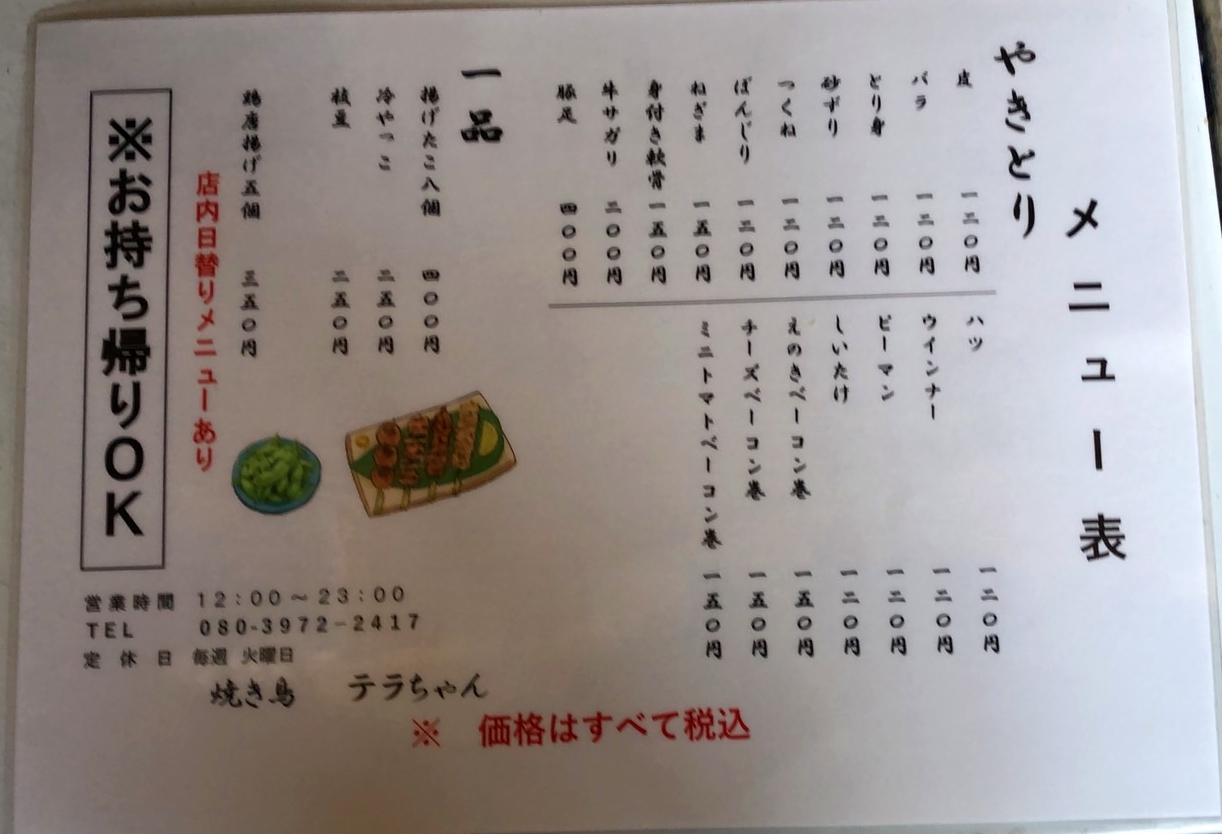 メニュー表
やきとり
皮 一二〇円
バラ 一二〇円
とり身 一二〇円
砂ずり 一二〇円
つくね 一二〇円
ぼんじり 一二〇円
ねぎま 一五〇円
身付き軟骨 一五〇円
牛サガリ 二〇〇円
豚足 四〇〇円
ハツ 一二〇円
ウインナー 一二〇円
ピーマン 一二〇円
しいたけ 一二〇円
えのきベーコン巻 一五〇円
チーズベーコン巻 一五〇円
ミニトマトベーコン巻 一五〇円
一品
揚げたこ八個 四〇〇円
冷やっこ 二五〇円
枝豆 二五〇円
鶏唐揚げ五個 三五〇円
店内日替りメニューあり
※お持ち帰りOK
営業時間 12:00～23:00
TEL 080-3972-2417
定休日 毎週 火曜日
焼き鳥 テラちゃん
※ 価格はすべて税込